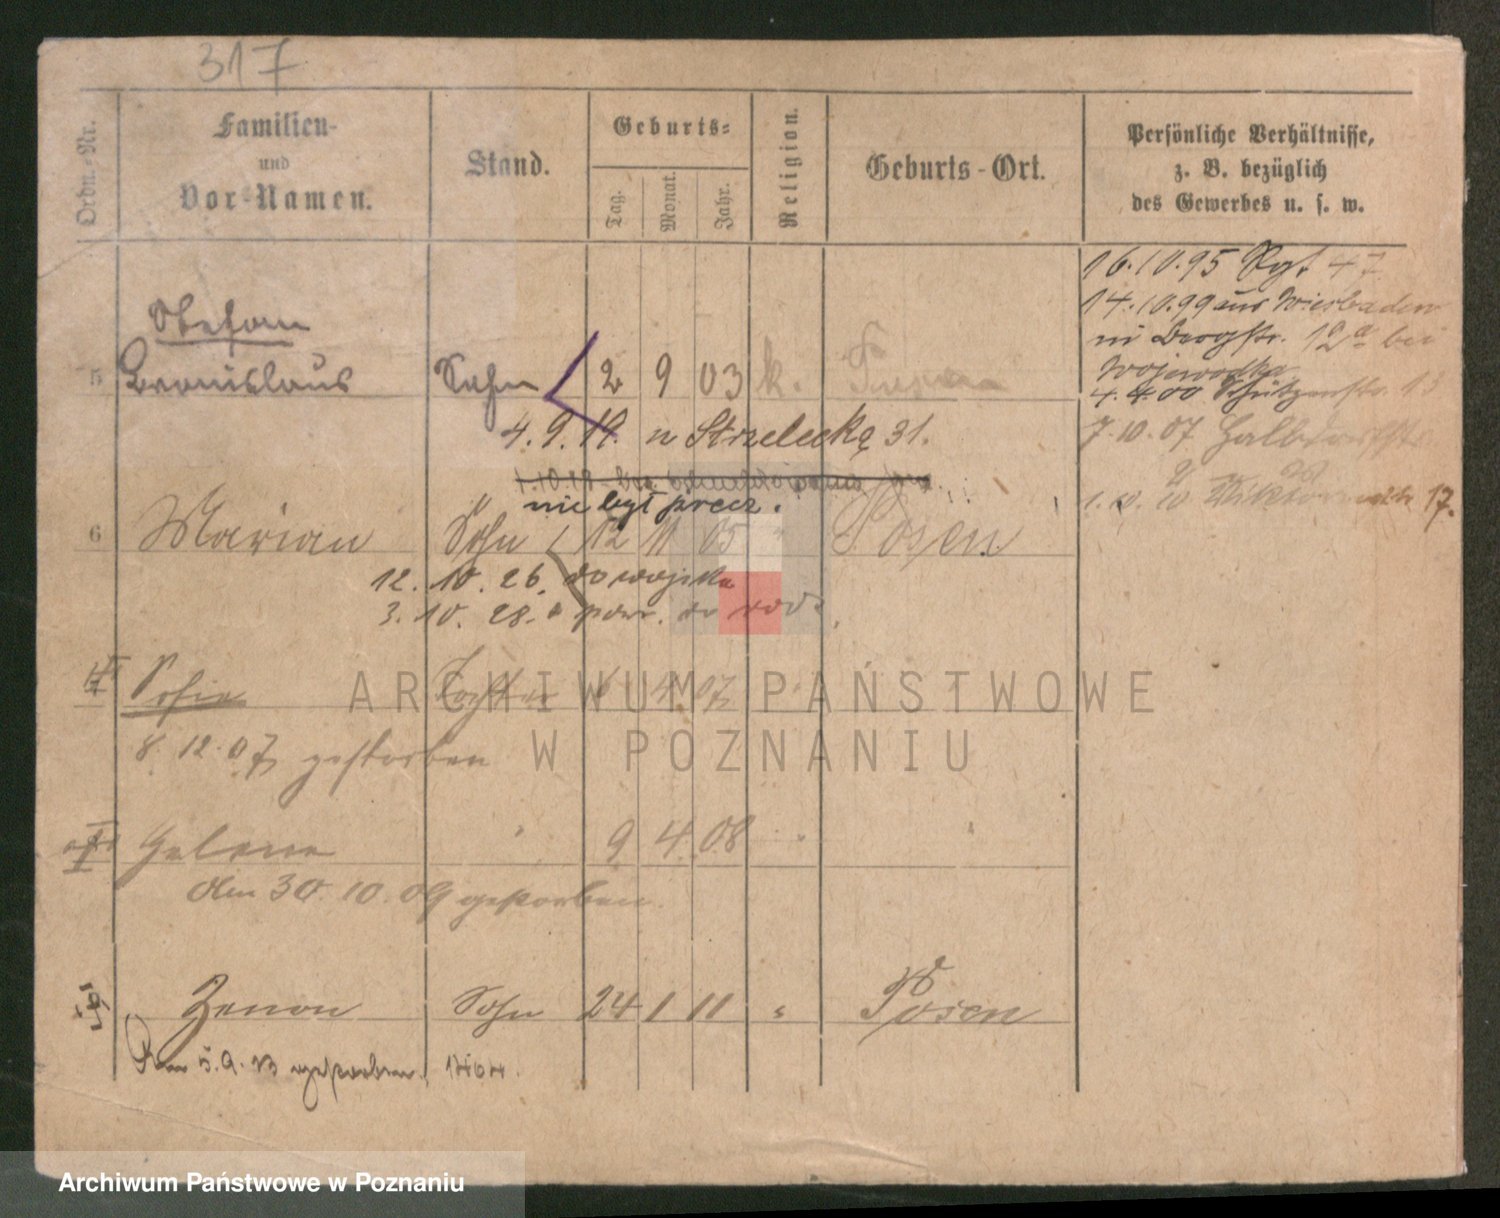 317
Ordn.-Nr.
Familien-
und
Vor-Namen.
Stand.
Geburts-
Tag.
Monat.
Jahr.
Religion.
Geburts-Ort.
Persönliche Verhältnisse,
z. B. bezüglich
des Gewerbes u. s. w.
16.10.95 Rgt 47
14.10.99 aus Wiesbaden
in Bergstr. 12a bei
Wojewodka
4.4.00 Schützenstr. 13
7.10.07 Halbdorfstr
17.
Stefan
5 Bronislaus Sohn 2 9 03 k.
4.9.19. n Strzelecką 31.
nie był precz.
6 Marian Sohn 12 11 05 " Posen
12.10.26. do wojska
3.10.28. powr. do rodz.
Sofie Tochter 6 4 07 "
8.12.07 gestorben
Helene " 9 4 08 " "
den 30.10.09 gestorben.
Zenon Sohn 24 1 11 " Posen
Den 5.9.13 gestorben.
ARCHIWUM PAŃSTWOWE
W POZNANIU
Archiwum Państwowe w Poznaniu